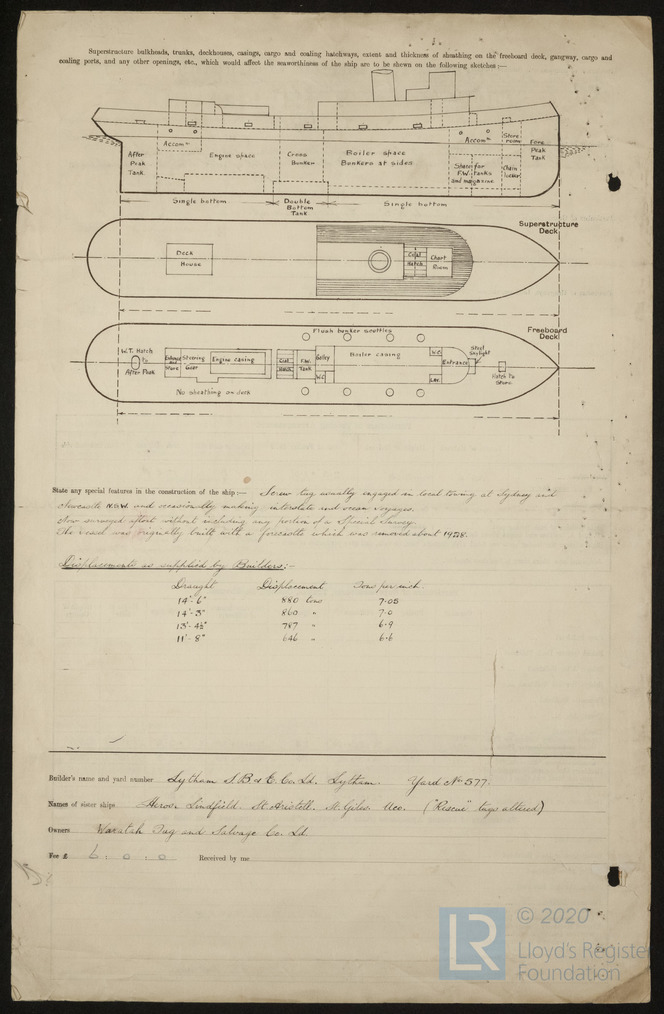 Superstructure bulkheads, trunks, deckhouses, casings, cargo and coaling hatchways, extent and thickness of sheathing on the freeboard deck, gangway, cargo and
coaling ports, and any other openings, etc., which would affect the seaworthiness of the ship are to be shewn on the following sketches:—
After Peak Tank
Accomn
Engine space
Cross Bunker
Boiler space
Bunkers at sides
Accomn
Store room
Fore Peak Tank
F.W. tanks and magazine
Chain locker
Single bottom
Double Bottom Tank
Single bottom
Superstructure Deck
Deck House
Coal Hatch
Chart Room
Freeboard Deck
Flush bunker scuttles
W.T. Hatch to After Peak
Entrance and Store
Steering Gear
Engine casing
Coal Hatch
F.W. Tank
Galley
W.C.
Boiler casing
W.C.
Lav.
Entrance
Steel Skylight
Hatch to Store
No sheathing on deck
State any special features in the construction of the ship:— Screw tug usually engaged in local towing at Sydney and
Newcastle N.S.W. and occasionally making interstate and ocean voyages.
Now surveyed afloat without including any portion of a Special Survey.
The vessel was originally built with a forecastle which was removed about 1928.
Displacements as supplied by Builders:-
Draught Displacement Tons per inch.
14'-6" 880 tons 7.05
14'-3" 860 " 7.0
13'-4½" 787 " 6.9
11'-8" 646 " 6.6
Builder's name and yard number Lytham S.B & E. Co. Ld. Lytham. Yard No 577.
Names of sister ships Heros. Lindfield. St Aristell. St. Giles. ("Rescue" tugs altered)
Owners Waratah Tug and Salvage Co. Ld
Fee £ 6 : 0 : 0 Received by me
LR
© 2020
Lloyd's Register
Foundation